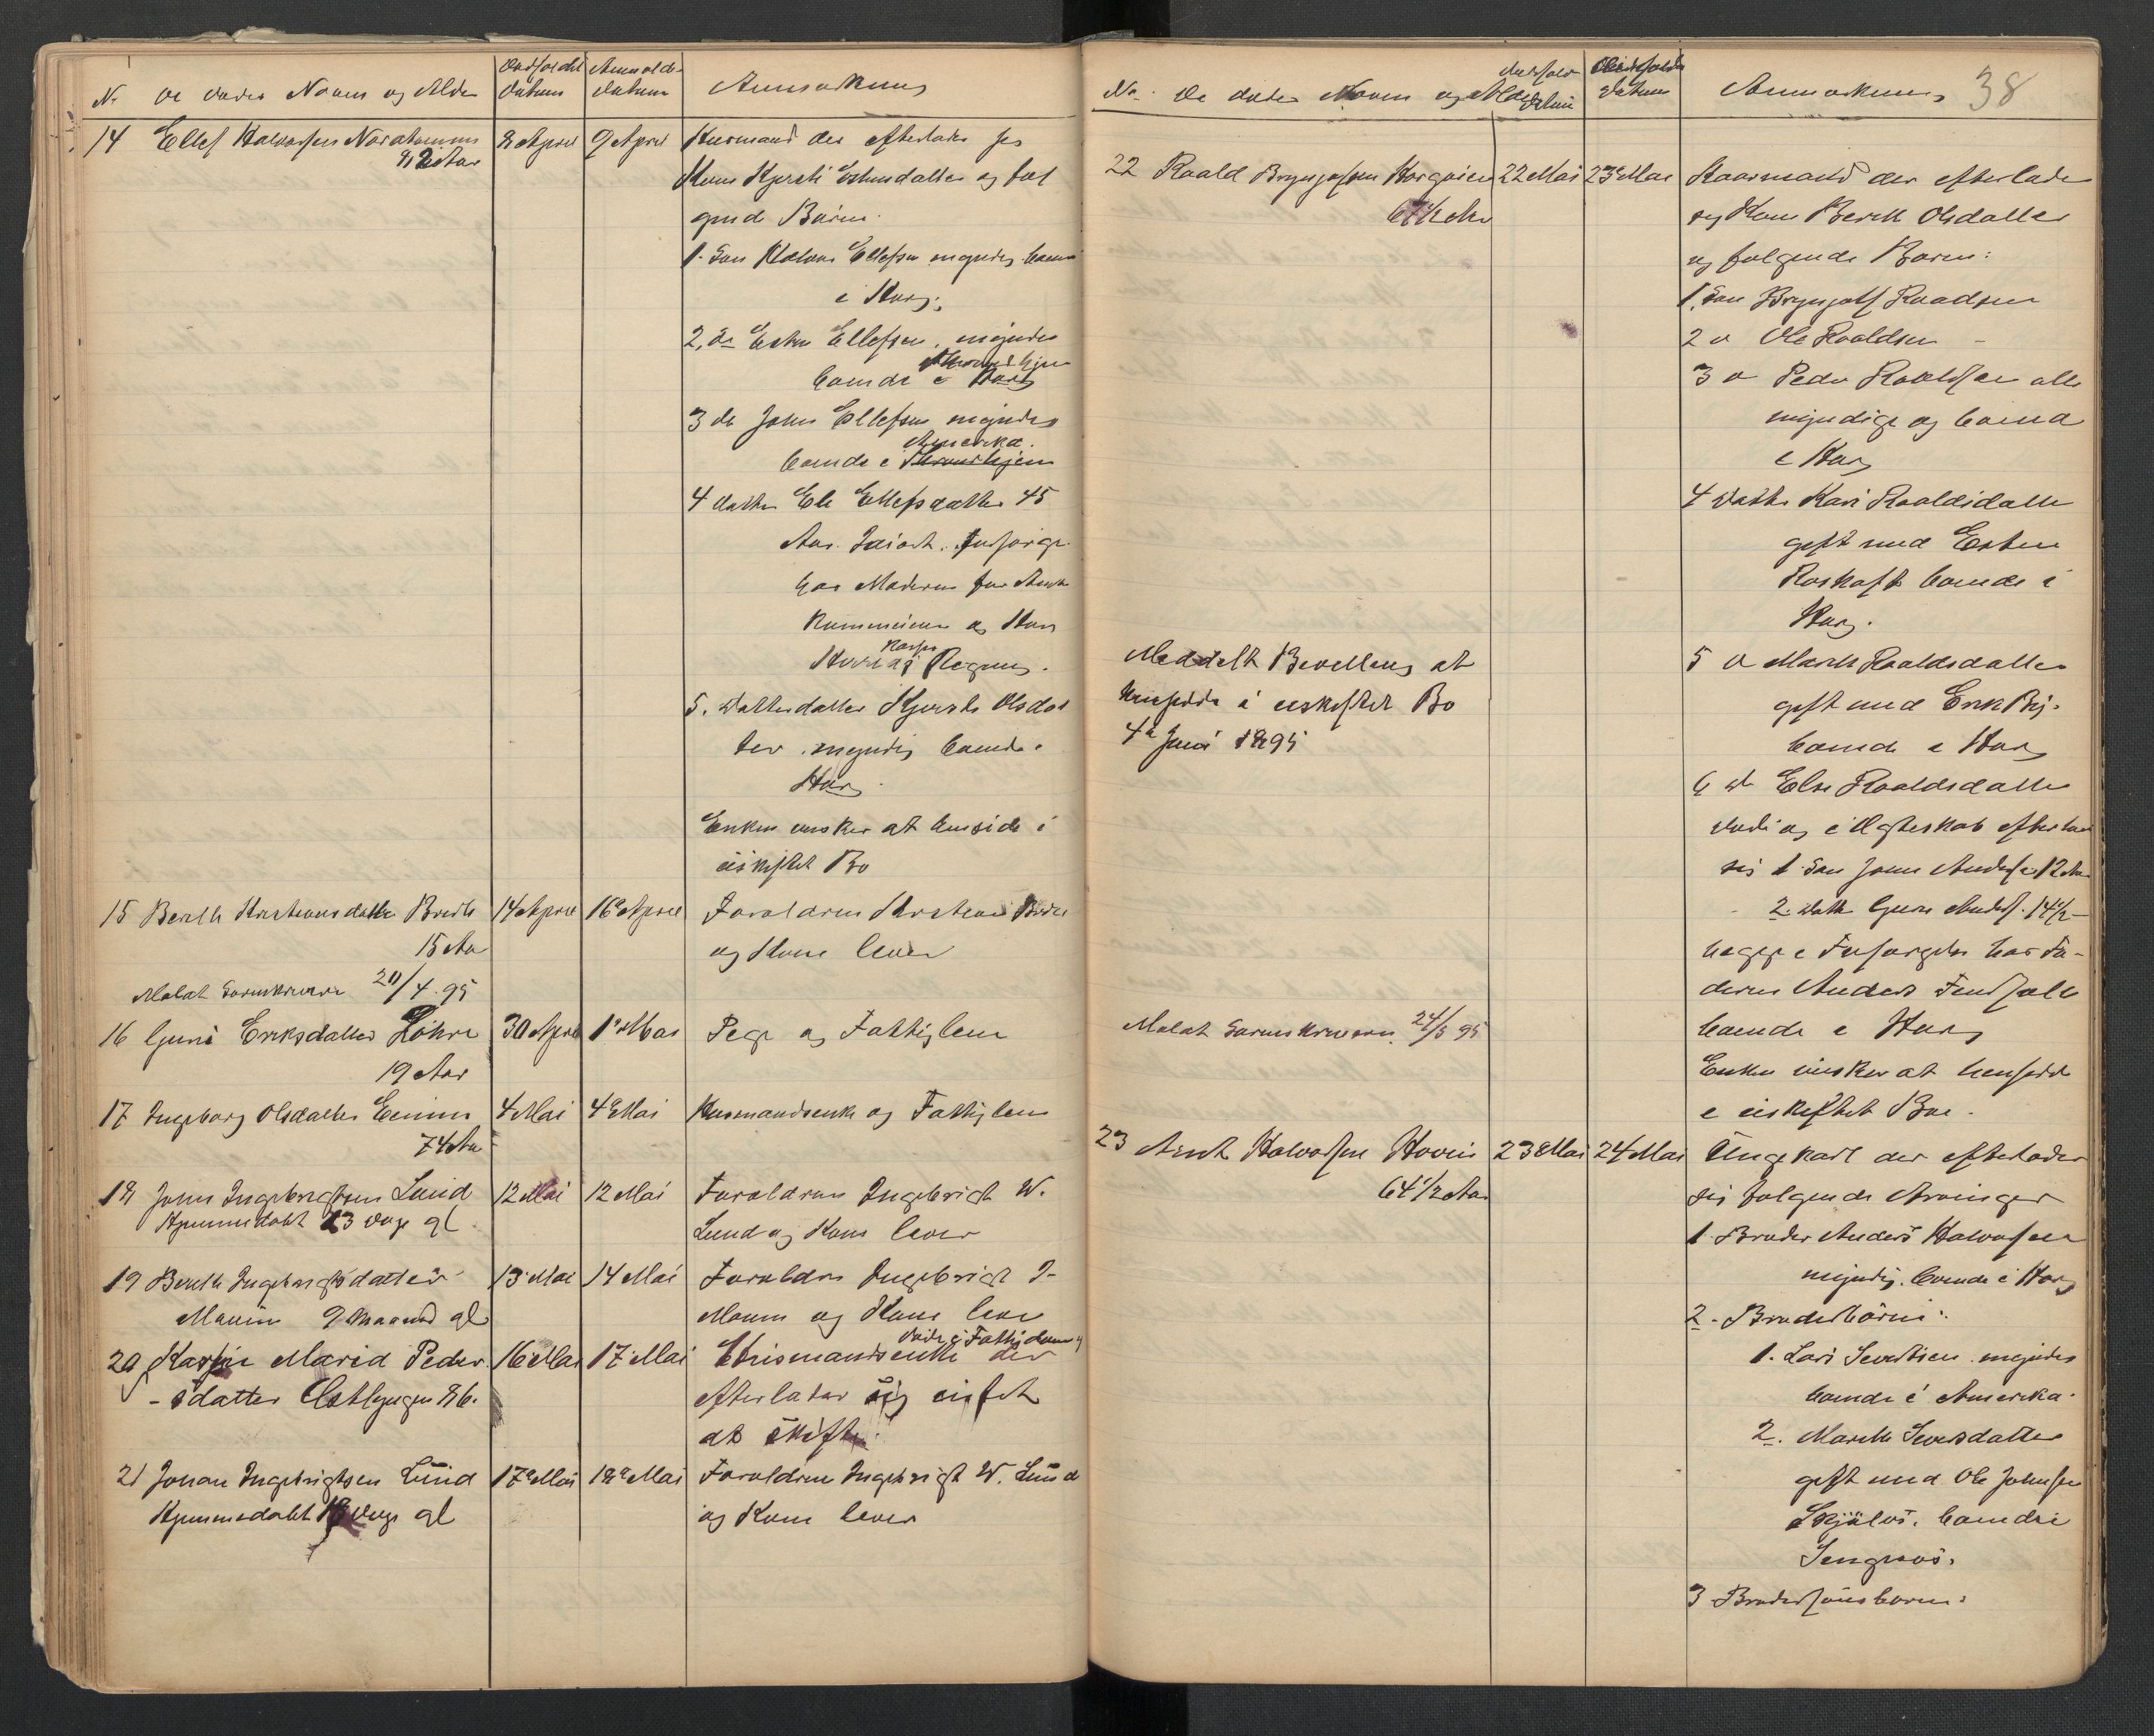 No de dødes Navn og Alder
Dødsfaldets Datum
Anmeldelses Datum
Anmærkning
14 Ellef Halvorsen
82 Aar
8 April
9 April
Husmand der efterlader sig
Kone Kjersti Estensdatter og føl
gende Børn.
1. Søn Halvor Ellefsen myndig boende
i Horg.
2. do Esten Ellefsen, myndig
boende i Horg
Throndhjem
3 do John Ellefsen myndig
Amerika.
boende i Throndhjem
4 datter Eli Ellefsdatter 45
Aar. Idiot. Forsørges
hos Moderen for Amts
kommunen og Horg
Herreds Regning.
5. Datterdatter Kjersti Olsdat
ter. myndig boende i
Horg.
Enken ønsker at hensidde i
uskiftet Bo
15 Berith Kristensdatter Bredli
15 Aar
14 April
16 April
Forældrene Kristen Bredli
og Kone lever
Meldt Sorenskriveren 20/4 95
16 Guri Eriksdatter Løhre
19 Aar
30 April
1 Mai
Pige og Fattiglem
17 Ingeborg Olsdatter
74 Aar
4 Mai
4 Mai
Husmandsenke og Fattiglem
18 John Ingebrigtsen Lund
Hjemmedøbt 13 Dage gl
12 Mai
12 Mai
Forældrene Ingebrigt W.
Lund og Kone lever
19 Berith Ingebrigtsdatter
9 Maaned gl
13 Mai
14 Mai
Forældre Ingebrigt J-
og Kone lever
20 Maria Peder
-sdatter 86.
16 Mai
17 Mai
døde i Fattigdom og
Husmandsenke der
efterlader sig intet
at skifte.
21 Johan Ingebrigtsen Lund
Hjemmedøbt 18 Dage gl
17 Mai
18 Mai
Forældrene Ingebrigt W. Lund
og Kone lever
No. De dødes Navn og Alder
Dødsfalds Datum
Datum
Anmærkning
38
22 Roald Brynjolfsen
67 1/2 Aar
22 Mai
23 Mai
Kaarmand der efterlader
sig Kone Berit Olsdatter
og følgende Børn:
1. Søn Brynjolf Roaldsen
2 " Ole Roaldsen -
3 " Peder Roaldsen alle
myndige og boende
i Horg
4 Datter Kari Roaldsdatter
gift med Esten
Roskaft boende i
Horg.
5 " Marit Roaldsdatter
gift med Erik
boende i Horg
6 do Else Roaldsdatter
død og i Ægteskab efterladt
sig 1 Søn John Anders. 12 Aar
2. Datt. Guru Anders. 14 1/2 -
begge i Forsørgelse hos Fa-
deren Anders
boende i Horg
Enken ønsker at hensidde
i uskiftet Bo.
Meddelt Bevilling at
hensidde i uskiftet Bo
4 Juni 1895
Meldt Sorenskriveren 24/5 95
23 Arnt Halvorsen Hovin
64 1/2 Aar
23 Mai
24 Mai
Ungkarl der efterlader
sig følgende Arvinger
1. Broder Anders Halvorsen
myndig. boende i Horg
2. Broderbørn:
1. Lars Sivertsen. myndig
boende i Amerika.
2. Marith Siversdatter
gift med Ole Johnsen
boende i
Singsaas.
3 Brodersønsbørn: